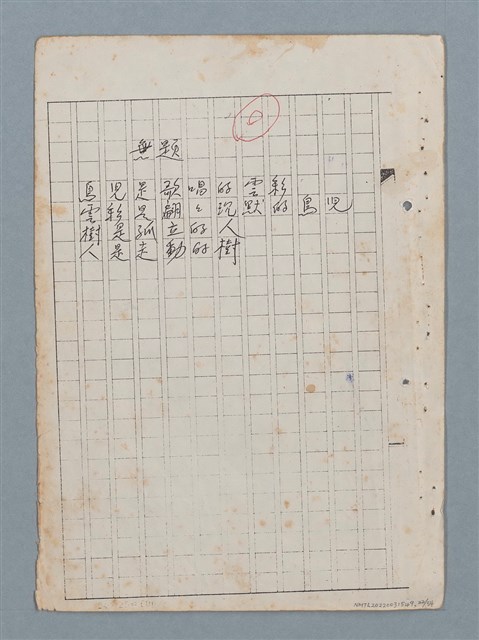 無題
鳥兒是歌唱的雲彩
雲彩是翩々沉默的鳥兒
樹是孤立的人
人是走動的樹